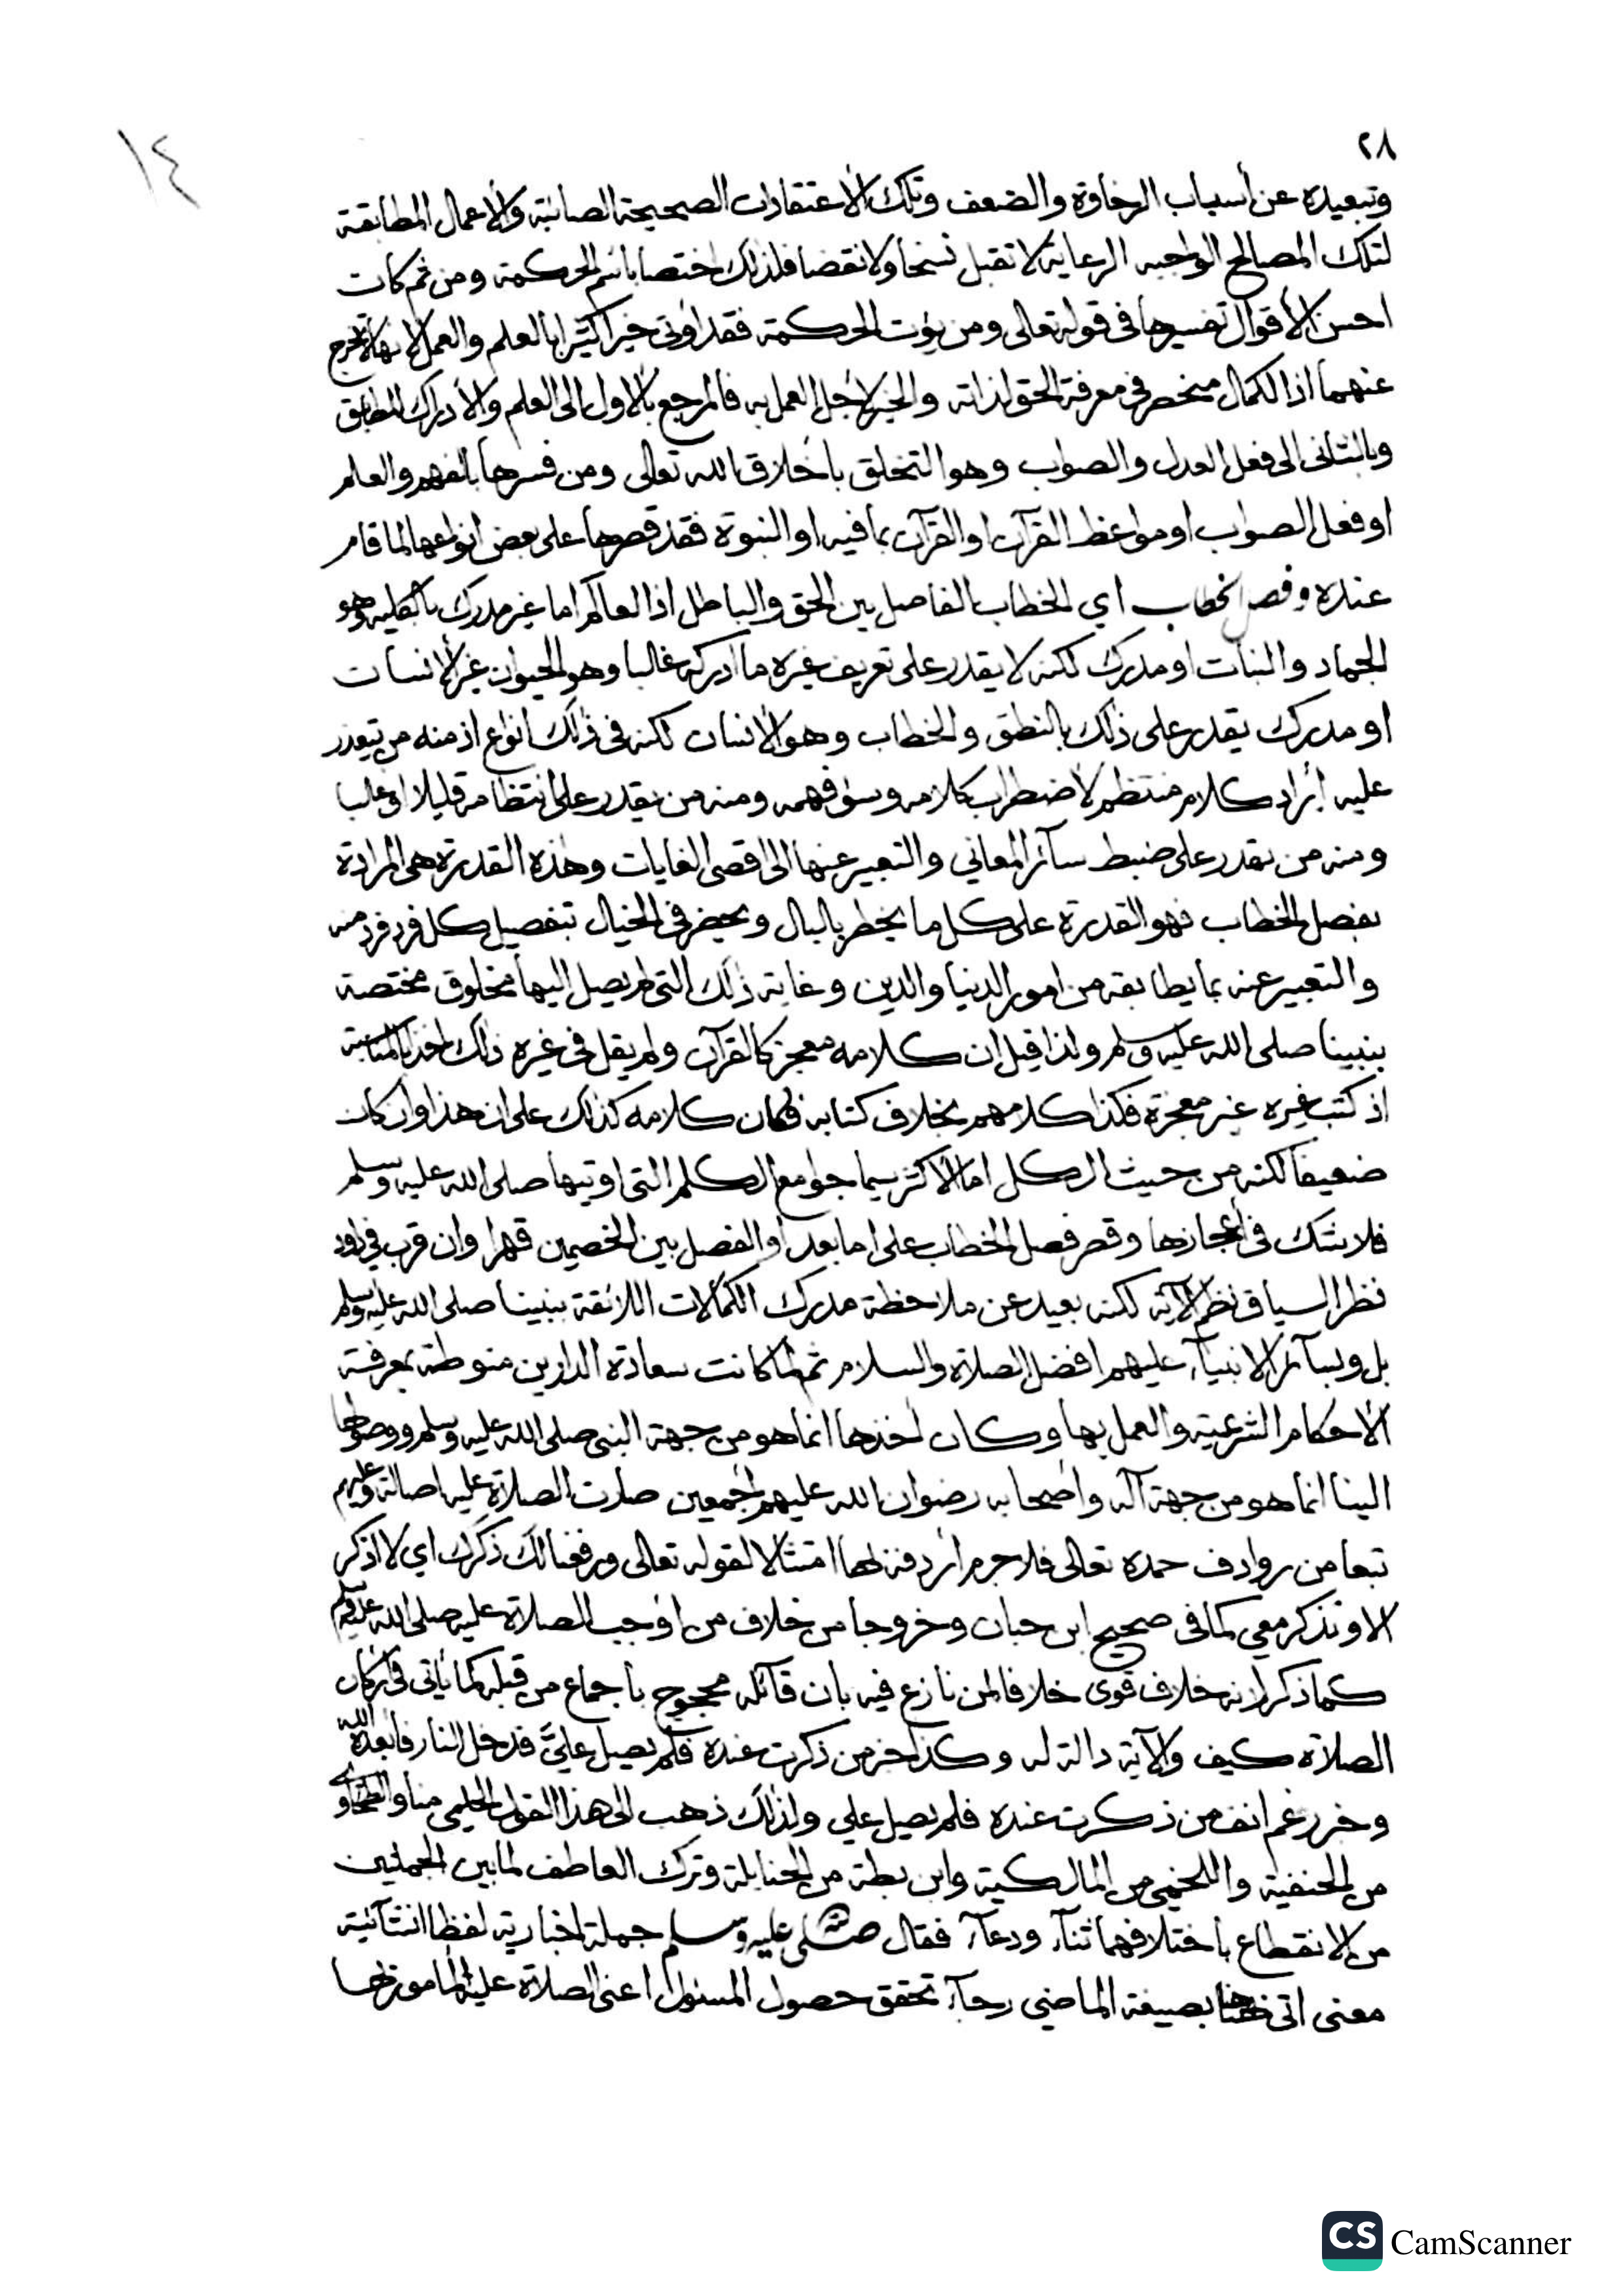 ٢٨
١٤
وتبعيده عن أسباب الرخاوة والضعف وتلك الأعتقادات الصحيحة الصائبة والاعمال المطابقة
لتلك المصالح الواجبه الرعاية لا تقبل نسخا ولا نقضا فلذلك اختصا باسم الحركمة ومن ثم كان
احسن الأقوال تفسيرها في قوله تعالى ومن يؤت الحكمة فقد اوتى خيرا كثيرا بالعلم والعمل لانها لا تخرج
عنهما اذ الكمال منحصر في معرفة الحق لذاته والخير لاجل العمل به فالمرجع بالاول الى العلم والادراك المطابق
وبالثانى الى فعل العدل والصواب وهو التخلق باخلاق الله تعالى ومن فسرها بالفهم والعلم
او فعل الصواب او مواعظ القرآن او القرآن بما فيه او النبوة فقد قصرها على بعض انواعها لما قام
عنده وفصل الخطاب اي الخطاب الفاصل بين الحق والباطل اذ العالم اما غير مدرك بالكلية وهو
الجماد والنبات او مدرك لكنه لا يقدر على تعريف غيره ما ادركه غالبا وهو الحيوان غير الأنسان
او مدرك يقدر على ذلك بالنطق والخطاب وهو الانسان لكنه في ذلك انواع اذ منه من يتعذر
عليه أيراد كلام منتظم لأضطراب كلامه وسوء فهمه ومنه من يقدر على انتظامه قليلا او غالبا
ومنه من يقدر على ضبط سآئر المعاني والتعبير عنها الى اقصى الغايات وهذه القدرة هى المرادة
بفصل الخطاب فهو القدرة على كل ما يخطر بالبال ويحضر في الخيال بتفصيل كل فرد فرد منه
والتعبير عنه بما يطابقه من امور الدنيا والدين وغاية ذلك التى لم يصل اليها مخلوق مختصة
بنبينا صلى الله عليه وسلم ولذا قيل ان كلامه معجز كالقرآن ولم يقل في غيره ذلك اخذا بالمناسبة
اذ كتب غيره غير معجزة فكذا كلامهم بخلاف كتابه فكان كلامه كذلك على ان هذا وان كان
ضعيفا لكنه من حيث الكل اما الأكثر سيما جوامع الكلم التى اوتيها صلى الله عليه وسلم
فلا شك في أعجازها وقصر فصل الخطاب على اما بعد او الفصل بين الخصمين قهرا وان قرب في داود
نظرا لسياق نظم الآية لكنه بعيد عن ملاحظة مدرك الكمالات اللائقة بنبينا صلى الله عليه وسلم
بل وبسآئر الانبيآء عليهم افضل الصلاة والسلام ثم لما كانت سعادة الدارين منوطة بمعرفة
الأحكام الشرعية والعمل بها وكان أخذها انما هو من جهة النبى صلى الله عليه وسلم ووصولها
الينا انما هو من جهة آله واصحابه رضوان الله عليهم اجمعين صارت الصلاة عليه اصالة وعليهم
تبعا من روادف حمده تعالى فلا جرم اردفه لها امتثالا لقوله تعالى ورفعنا لك ذكرك اي لا اذكر
الا وتذكر معي كما فى صحيح ابن حبان وخروجا من خلاف من اوجب الصلاة عليه صلى الله عليه وسلم
كلما ذكر لانه خلاف قوى خلافا لمن نازع فيه بان قآئله محجوج بأجماع من قبله كما يأتى في اركان
الصلاة كيف والآية دالة له وكذا خبر من ذكرت عنده فلم يصل عليّ فدخل النار فابعده الله
وخبر رغم انف من ذكرت عنده فلم يصل علي ولذلك ذهب الى هذا القول الحليمى منا والطحاوى
من الحنفية واللخمى من المالكية وابن بطة من الحنابلة وترك العاطف لما بين الجملتين
من الانقطاع بأختلافهما ثنآء ودعآء فقال صلى الله عليه وسلم جملة اخبارية لفظا انشآئية
معنى اتى بصيغة الماضي رجآء تحقق حصول المسئول اعنى الصلاة عليه المأمور بها
CS CamScanner